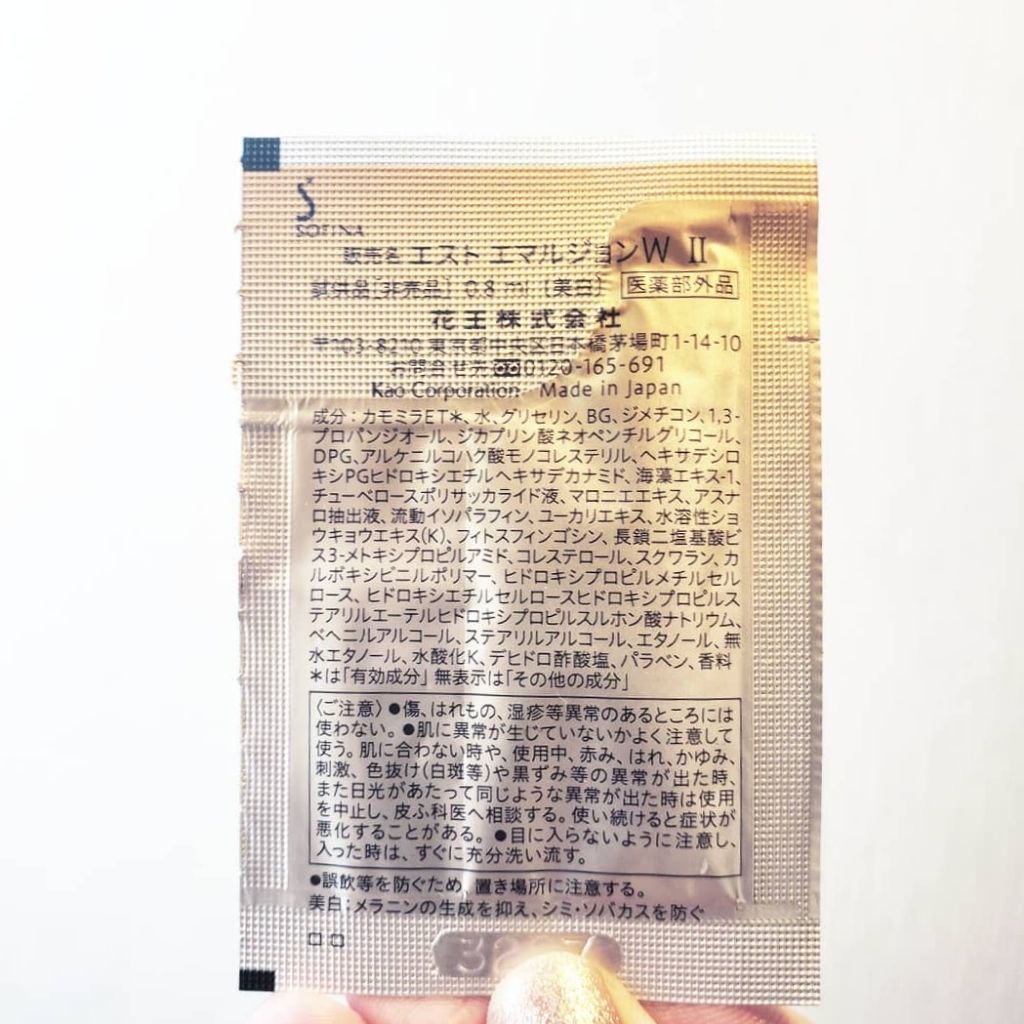 SOFINA
販売名 エスト エマルジョンW II
試供品[非売品] 0.8 ml [美白] 医薬部外品
花王株式会社
〒103-8210 東京都中央区日本橋茅場町1-14-10
お問合せ先 0120-165-691
Kao Corporation Made in Japan
成分:カモミラET*、水、グリセリン、BG、ジメチコン、1,3-
プロパンジオール、ジカプリン酸ネオペンチルグリコール、
DPG、アルケニルコハク酸モノコレステリル、ヘキサデシロ
キシPGヒドロキシエチルヘキサデカナミド、海藻エキス-1、
チューベロースポリサッカライド液、マロニエエキス、アスナ
ロ抽出液、流動イソパラフィン、ユーカリエキス、水溶性ショ
ウキョウエキス(K)、フィトスフィンゴシン、長鎖二塩基酸ビ
ス3-メトキシプロピルアミド、コレステロール、スクワラン、カ
ルボキシビニルポリマー、ヒドロキシプロピルメチルセル
ロース、ヒドロキシエチルセルロースヒドロキシプロピルス
テアリルエーテルヒドロキシプロピルスルホン酸ナトリウム、
ベヘニルアルコール、ステアリルアルコール、エタノール、無
水エタノール、水酸化K、デヒドロ酢酸塩、パラベン、香料
*は「有効成分」 無表示は「その他の成分」
〈ご注意〉●傷、はれもの、湿疹等異常のあるところには
使わない。●肌に異常が生じていないかよく注意して
使う。肌に合わない時や、使用中、赤み、はれ、かゆみ、
刺激、色抜け(白斑等)や黒ずみ等の異常が出た時、
また日光があたって同じような異常が出た時は使用
を中止し、皮ふ科医へ相談する。使い続けると症状が
悪化することがある。●目に入らないように注意し、
入った時は、すぐに充分洗い流す。
●誤飲等を防ぐため、置き場所に注意する。
美白:メラニンの生成を抑え、シミ・ソバカスを防ぐ